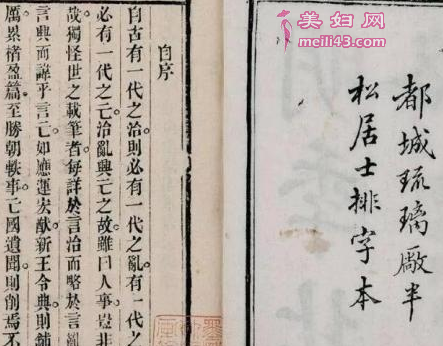 美妇网
meili43.com
都城琉璃厰半
松居士排字本
自序
自古有一代之治則必有一代之亂。有一代之
必有一代之亡治亂興亡之故。雖曰人事。豈非
哉。獨怪世之載筆者。每詳於言治而略於言亂
言興而諱乎言亡。如應運炎猷新王令典則鋪
厲累楮盈篇。至勝朝軼事。亡國遺聞。則削焉不